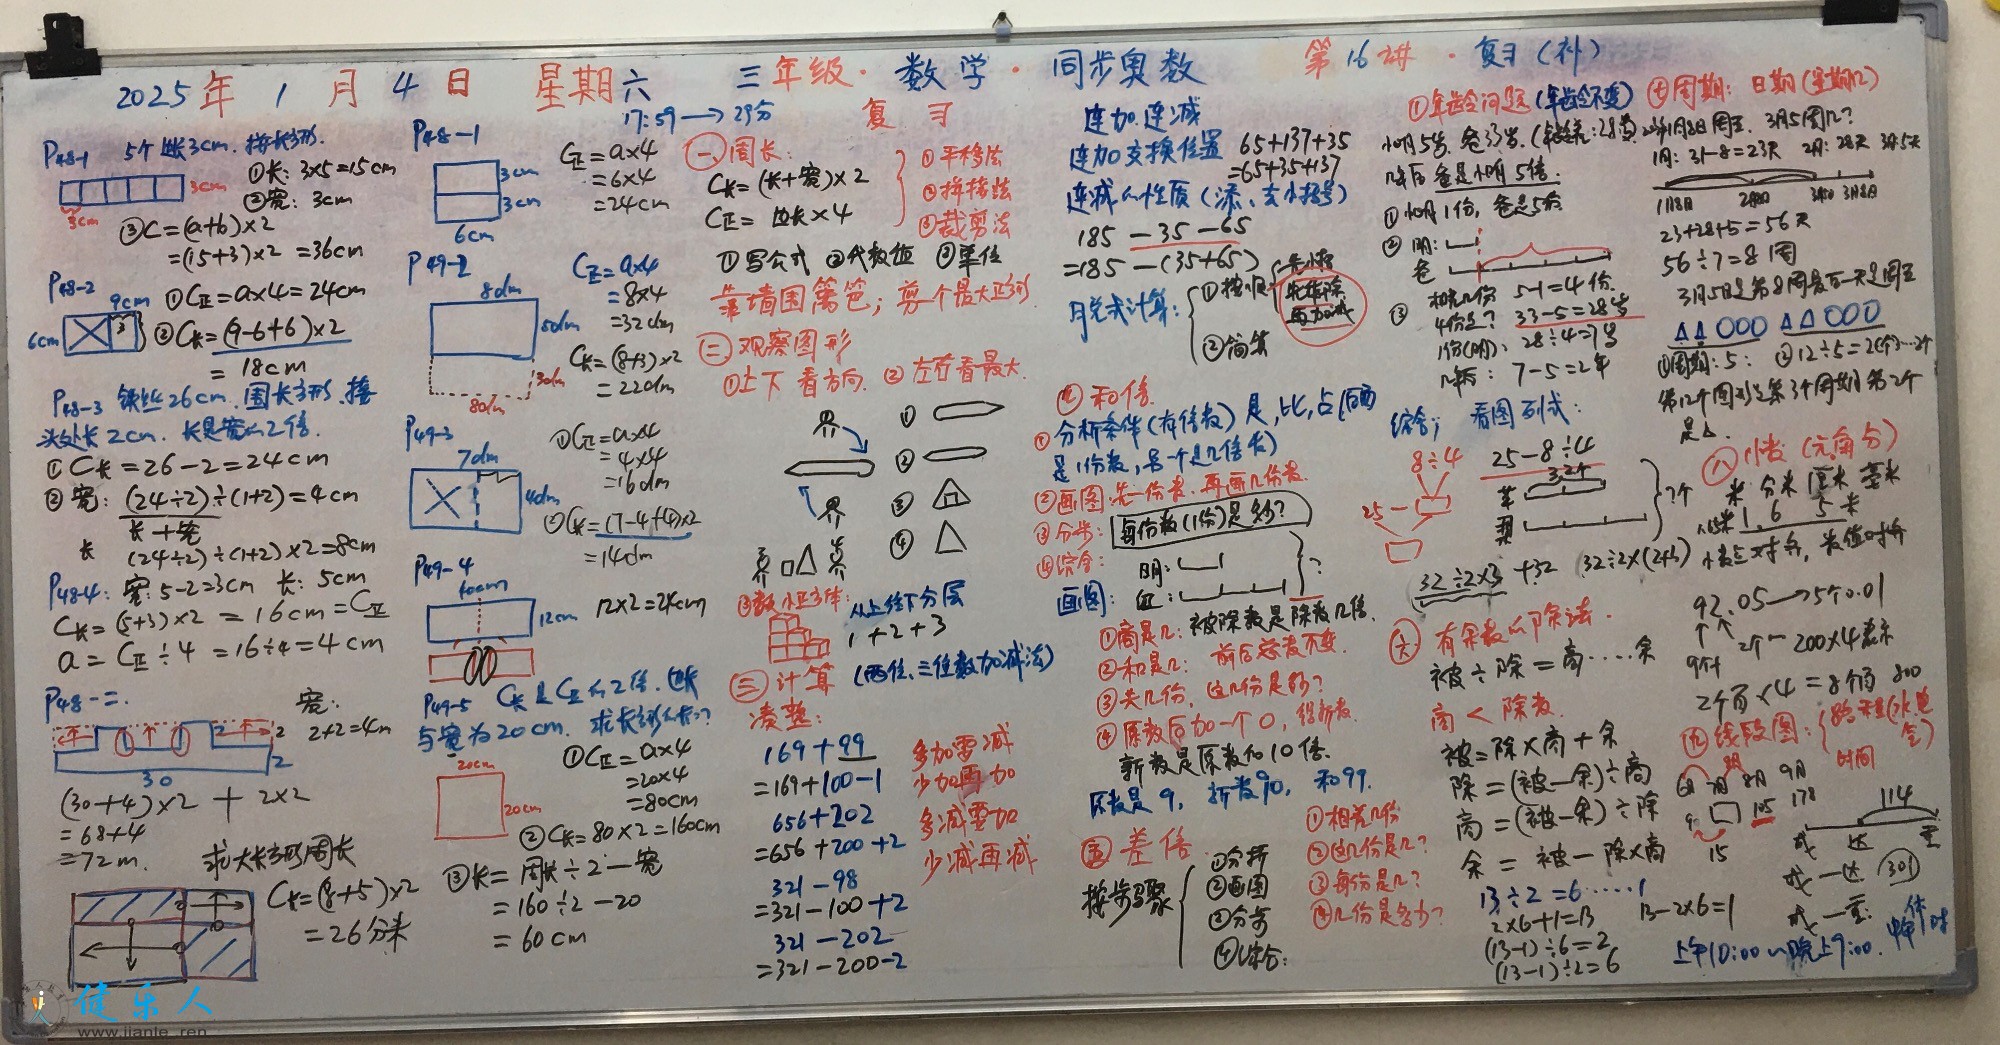 2025年1月4日 星期六 三年级·数学·同步奥数 第16讲·复习(补)
17:59→29分
P48-1 5个边长3cm.拼长方形.
①长: 3×5=15cm
②宽: 3cm
3cm
3cm
③C=(a+b)×2
=(15+3)×2=36cm
P48-2
9cm
6cm
3
①C正=a×4=24cm
②C长=(9-6+6)×2
=18cm
P48-3 铁丝26cm.围长方形.接
头处长2cm.长是宽的2倍.
①C长=26-2=24cm
②宽: (24÷2)÷(1+2)=4cm
长+宽
长 (24÷2)÷(1+2)×2=8cm
P48-4: 宽:5-2=3cm 长: 5cm
C长=(5+3)×2=16cm=C正
a=C正÷4=16÷4=4cm
P48-二
宽:
2+2=4m
2
2
30
(30+4)×2+2×2
=68+4
=72m.
求大长方形周长
C长=(8+5)×2
=26分米
P48-1
3cm
3cm
6cm
C正=a×4
=6×4
=24cm
P49-2
8dm
5dm
3dm
8dm
C正=a×4
=8×4
=32dm
C长=(8+3)×2
=22dm
P49-3
7dm
4dm
①C正=a×4
=4×4
=16dm
②C长=(7-4+4)×2
=14dm
P49-4
12cm
12×2=24cm
P49-5 C长是C正的2倍.边长
与宽为20cm.求长方形的长?
20cm
20cm
①C正=a×4
=20×4
=80cm
②C长=80×2=160cm
③长=周长÷2-宽
=160÷2-20
=60cm
复习
(一)周长:
C长=(长+宽)×2
C正=边长×4
①平移法
②拼接法
③裁剪法
①写公式 ②代数值 ③单位
靠墙围篱笆;剪个最大正方形
(二)观察图形
①上下看方向.②左右看最大.
①
②
③
④
③数小正方体:
从上往下分层
1+2+3
(三)计算
(两位、三位数加减法)
凑整:
169+99
=169+100-1
656+202
=656+200+2
321-98
=321-100+2
321-202
=321-200-2
多加要减
少加再加
多减要加
少减再减
连加.连减
连加交换位置
65+137+35
=65+35+137
连减的性质(添、去小括号)
185-35-65
=185-(35+65)
脱式计算:
①按顺
先小括
先乘除
再加减
②简算
(四)和倍
①分析条件(有倍数)是,比,占后面
是1份数,另一个是几倍数)
②画图:先一份数.再画几份数.
③分步: 每份数(1份)是多少?
④综合:
画图:
明:
?
①商是几: 被除数是除数几倍.
②和是几: 前后总数不变.
③共几份,这几份是多少?
④原数后加一个0,得新数.
新数是原数的10倍.
原数是9,新数90,和99.
(五)差倍
按步骤
①分析
②画图
③分步
④综合:
①相差几份
②这几份是几?
③每份是几?
④几份是多少?
①年龄问题(年龄差不变)
小明5岁.爸33岁.(年龄差:28岁)
几年后爸是小明5倍.
①小明1份,爸是5份
②明:
爸
③相差几份 5-1=4份.
4份是? 33-5=28岁
1份(明): 28÷4=7岁
几年后: 7-5=2年
综合; 看图列式:
8÷4
25-
25-8÷4
32个
苹
梨
?个
32÷2×3+32 32÷2×(2+3)
(六)有余数的除法.
被÷除=商……余
商<除数.
被=除×商+余
除=(被-余)÷商
商=(被-余)÷除
余=被-除×商
13÷2=6……1
2×6+1=13
13-2×6=1
(13-1)÷6=2
(13-1)÷2=6
(七)周期: 日期(星期几)
1月: 31-8=23天 2月: 28天 3月5天
1月8日
23+28+5=56天
56÷7=8周
3月5日是第8周最后一天是周五
△△○○○△△○○○
①周期: 5: ②12÷5=2(个)……2个
第12个图形是第3个周期第2个
是△.
(八)小数(元角分)
米 分米 厘米 毫米
1.65米
小数点对齐,数值对齐
92.05→5个0.01
9个十
2个一
200×4表示
2个百×4=8个百 800
(九)线段图:
路程(水电
时间
6月 7月 8月 9月
9
105
178
15
114
成 达 重
成—达
301
成—重:
上午10:00~晚上9:00.